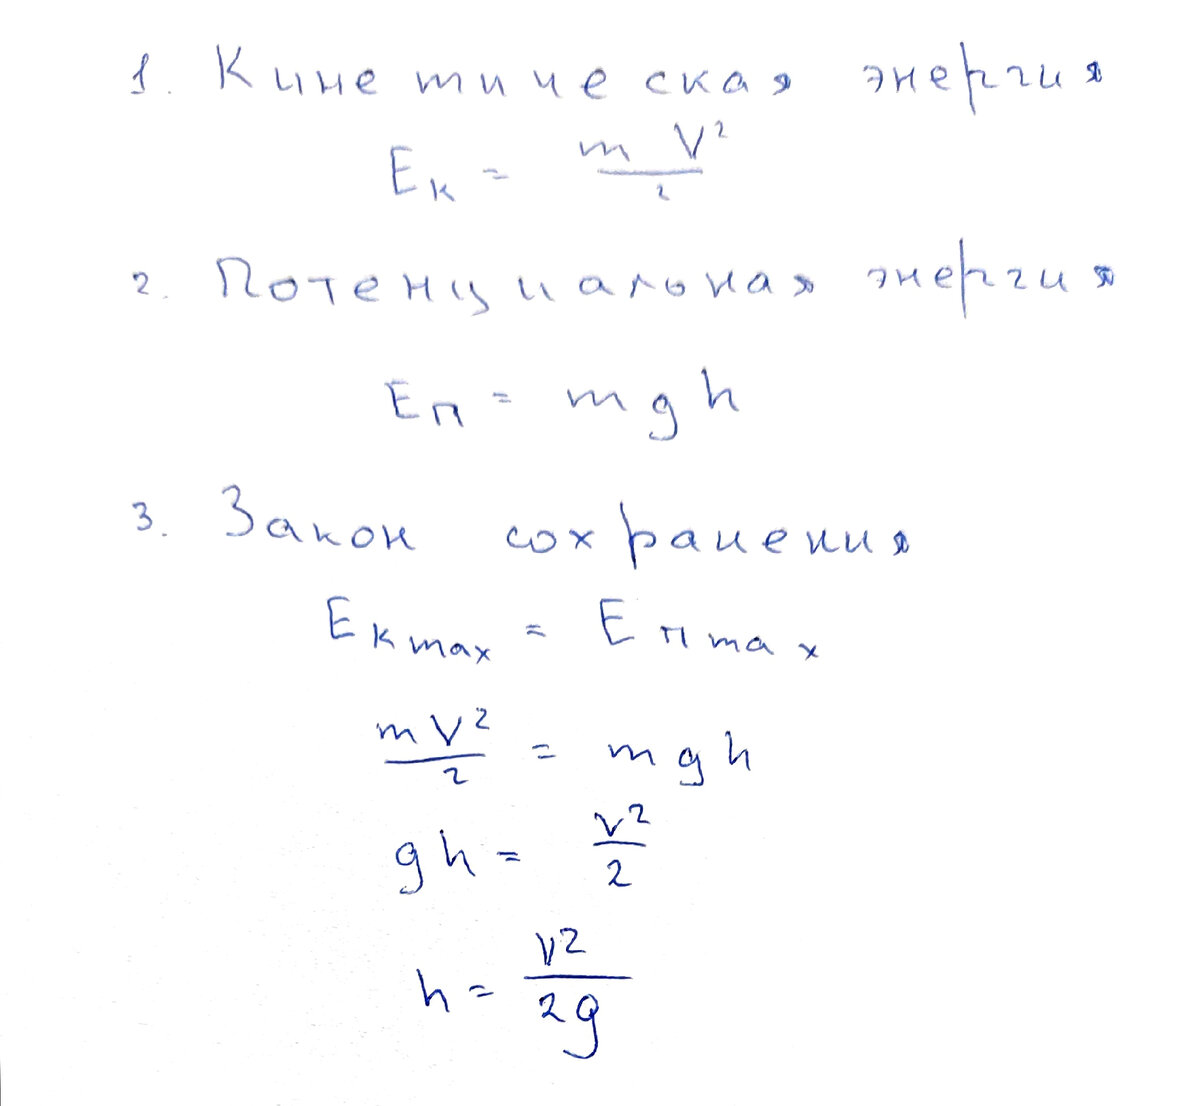 1. Кинетическая энергия
Eк = mV²/2
2. Потенциальная энергия
Eп = mgh
3. Закон сохранения
Eкmax = Eпmax
mV²/2 = mgh
gh = v²/2
h = v²/2g